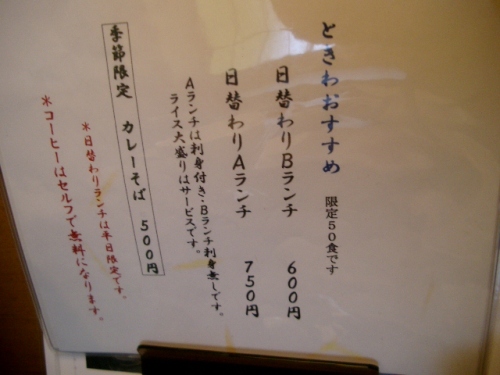 ときわおすすめ 限定50食です
日替わりBランチ 600円
日替わりAランチ 750円
Aランチは刺身付き・Bランチ刺身無しです。
ライス大盛りはサービスです。
季節限定 カレーそば 500円
＊日替わりランチは平日限定です。
＊コーヒーはセルフで無料になります。